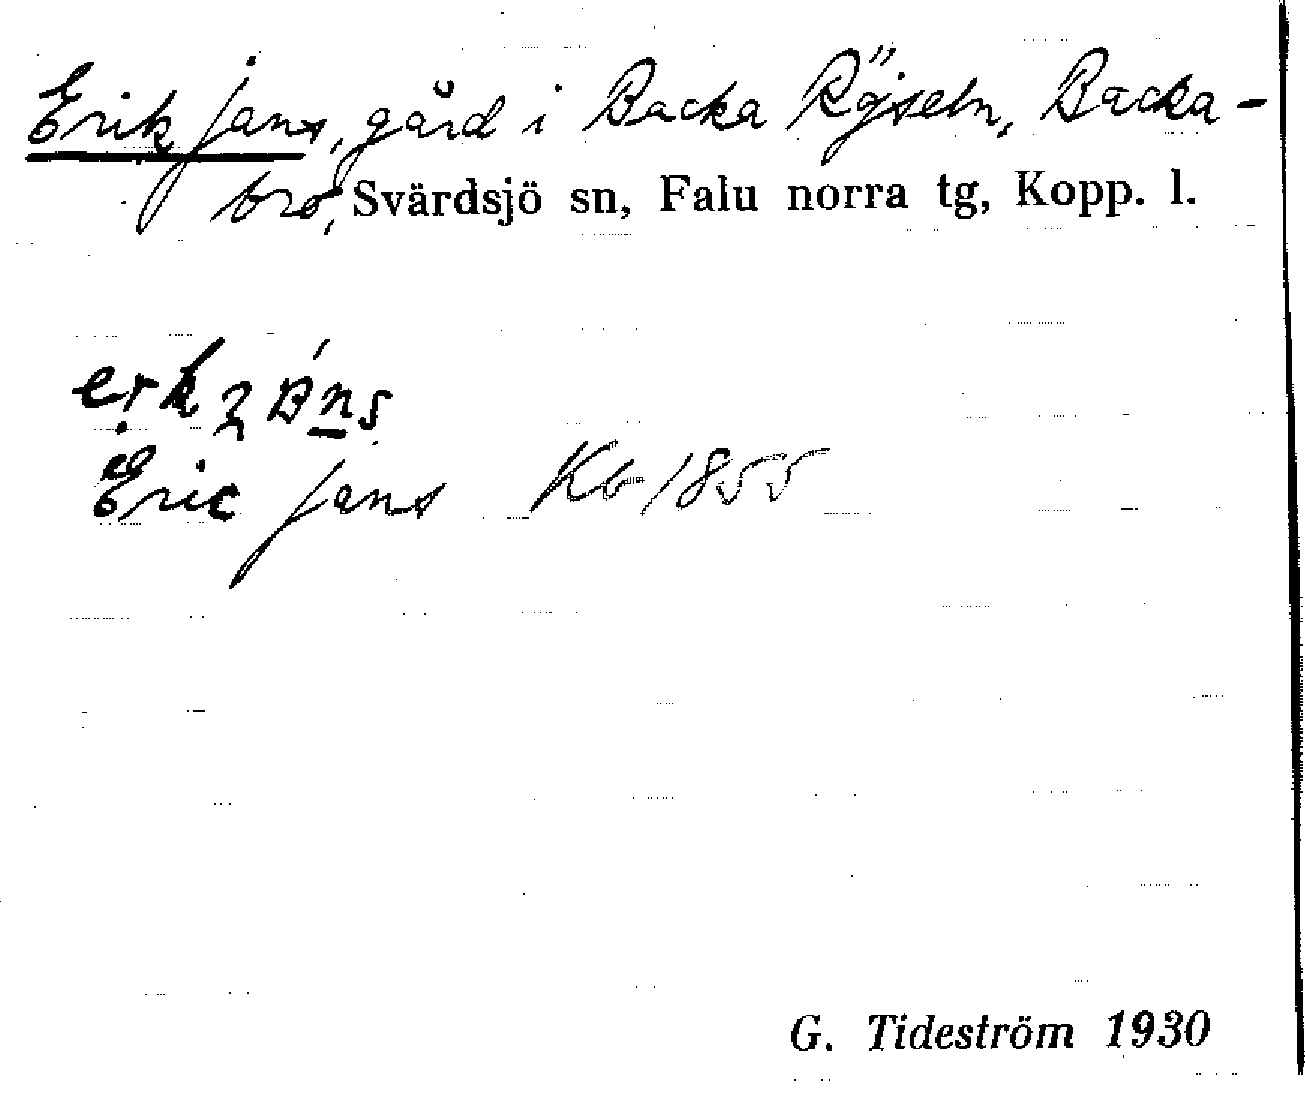 Erik jans, gård i Backa Röjseln, Backa-
bro, Svärdsjö sn, Falu norra tg, Kopp. l.
Eric Jans Kb 1855
G. Tideström 1930